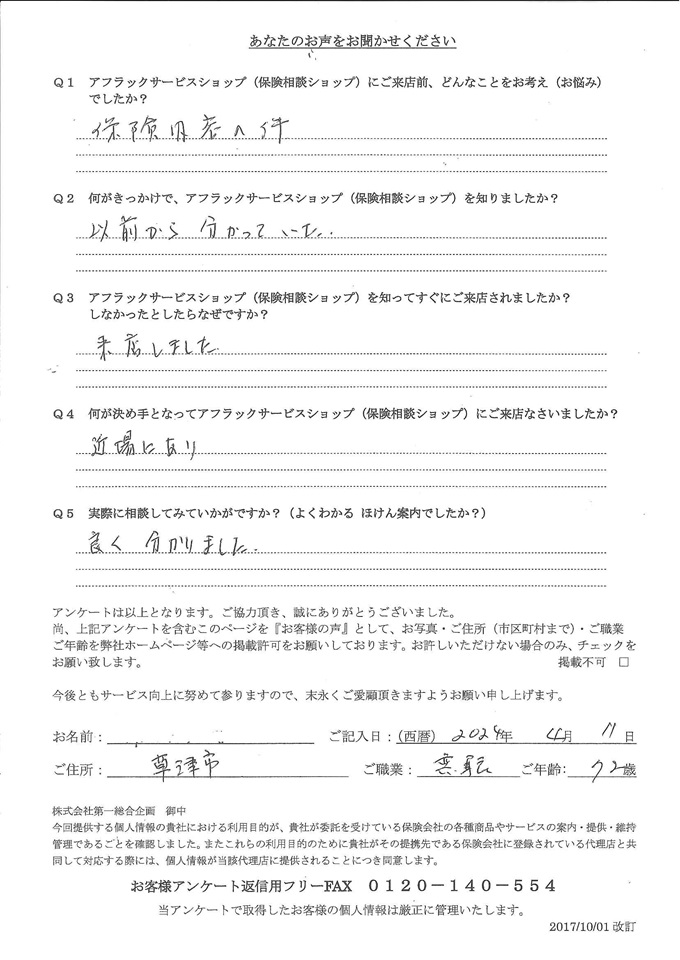 あなたのお声をお聞かせください
Q1 アフラックサービスショップ（保険相談ショップ）にご来店前、どんなことをお考え（お悩み）
でしたか？
保険内容の件
Q2 何がきっかけで、アフラックサービスショップ（保険相談ショップ）を知りましたか？
以前から 分かって いた.
Q3 アフラックサービスショップ（保険相談ショップ）を知ってすぐにご来店されましたか？
しなかったとしたらなぜですか？
来店しました
Q4 何が決め手となってアフラックサービスショップ（保険相談ショップ）にご来店なさいましたか？
近場にあり
Q5 実際に相談してみていかがですか？（よくわかる ほけん案内でしたか？）
良く 分かりました.
アンケートは以上となります。ご協力頂き、誠にありがとうございました。
尚、上記アンケートを含むこのページを『お客様の声』として、お写真・ご住所（市区町村まで）・ご職業
ご年齢を弊社ホームページ等への掲載許可をお願いしております。お許しいただけない場合のみ、チェックを
お願い致します。 掲載不可 □
今後ともサービス向上に努めて参りますので、末永くご愛顧頂きますようお願い申し上げます。
お名前： ご記入日：（西暦） 2024年 4月 11日
ご住所： 草津市 ご職業： ご年齢： 72歳
株式会社第一総合企画 御中
今回提供する個人情報の貴社における利用目的が、貴社が委託を受けている保険会社の各種商品やサービスの案内・提供・維持
管理であるごとを確認しました。またこれらの利用目的のために貴社がその提携先である保険会社に登録されている代理店と共
同して対応する際には、個人情報が当該代理店に提供されることにつき同意します。
お客様アンケート返信用フリーFAX 0120－140－554
当アンケートで取得したお客様の個人情報は厳正に管理いたします。
2017/10/01 改訂